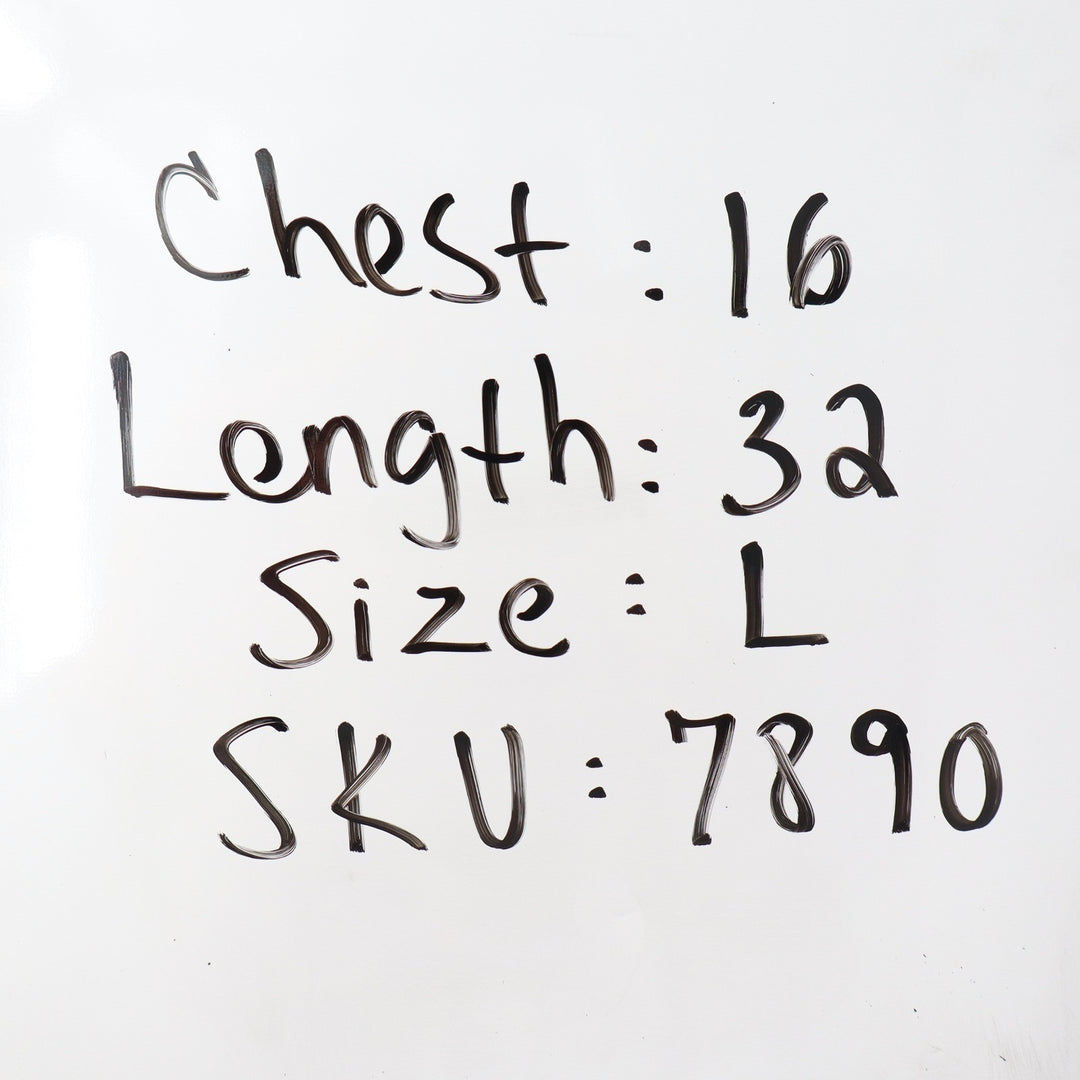 Chest: 16
Length: 32
Size: L
SKU: 7890